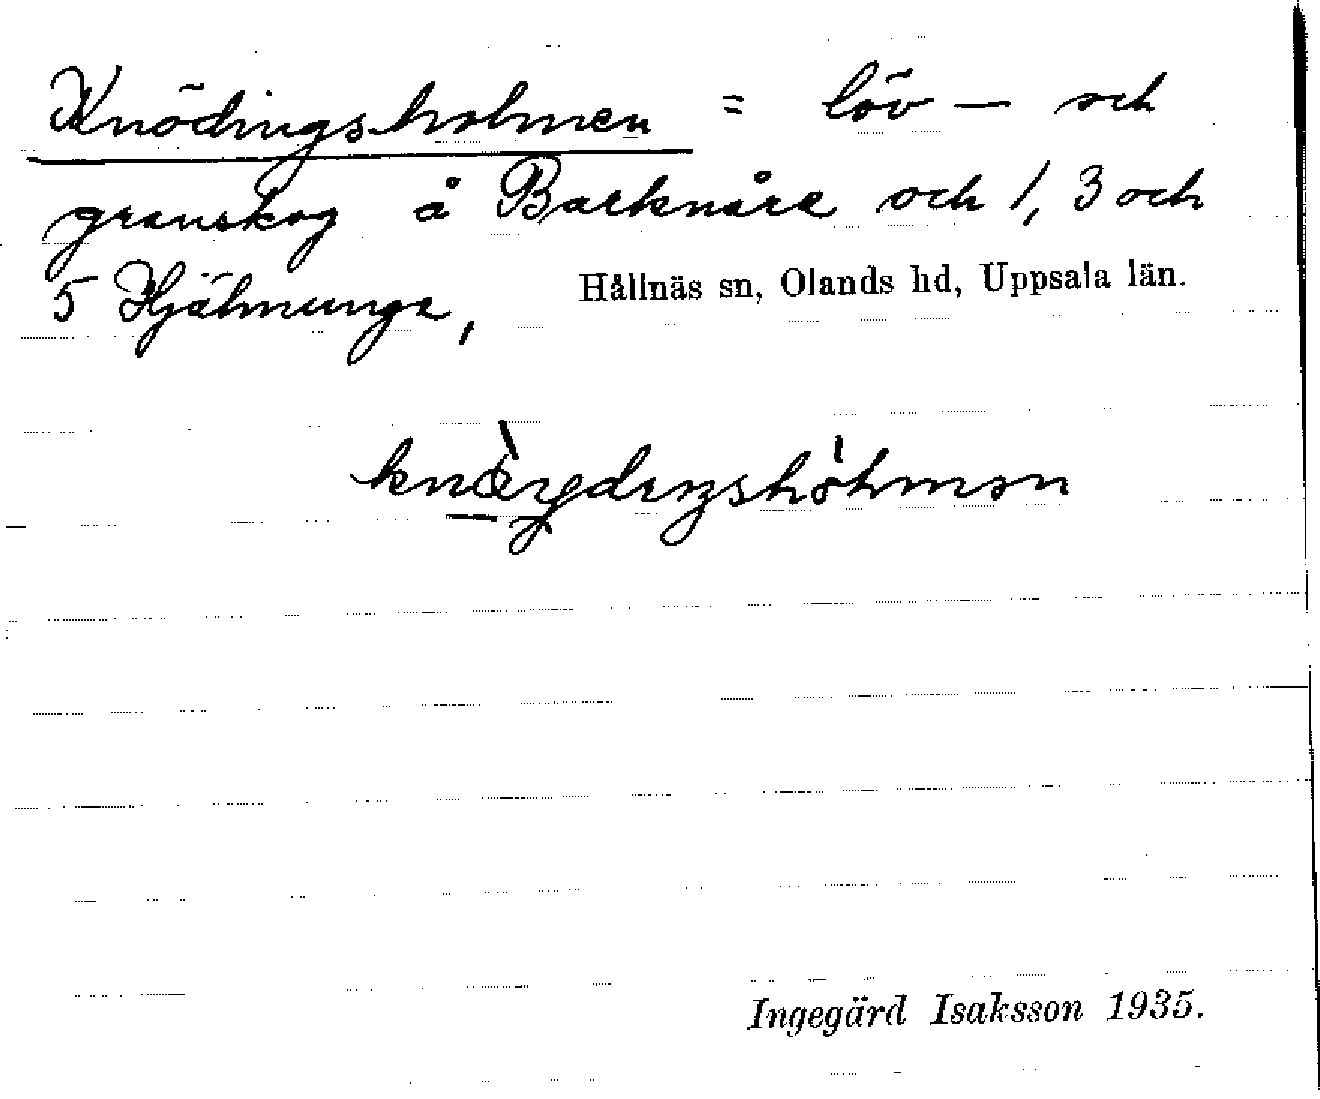 Knödingsholmen = löv – och
granskog å Barknåre och 1, 3 och
5 Hjälmunge, Hållnäs sn, Olands hd, Uppsala län.
Ingegärd Isaksson 1935.